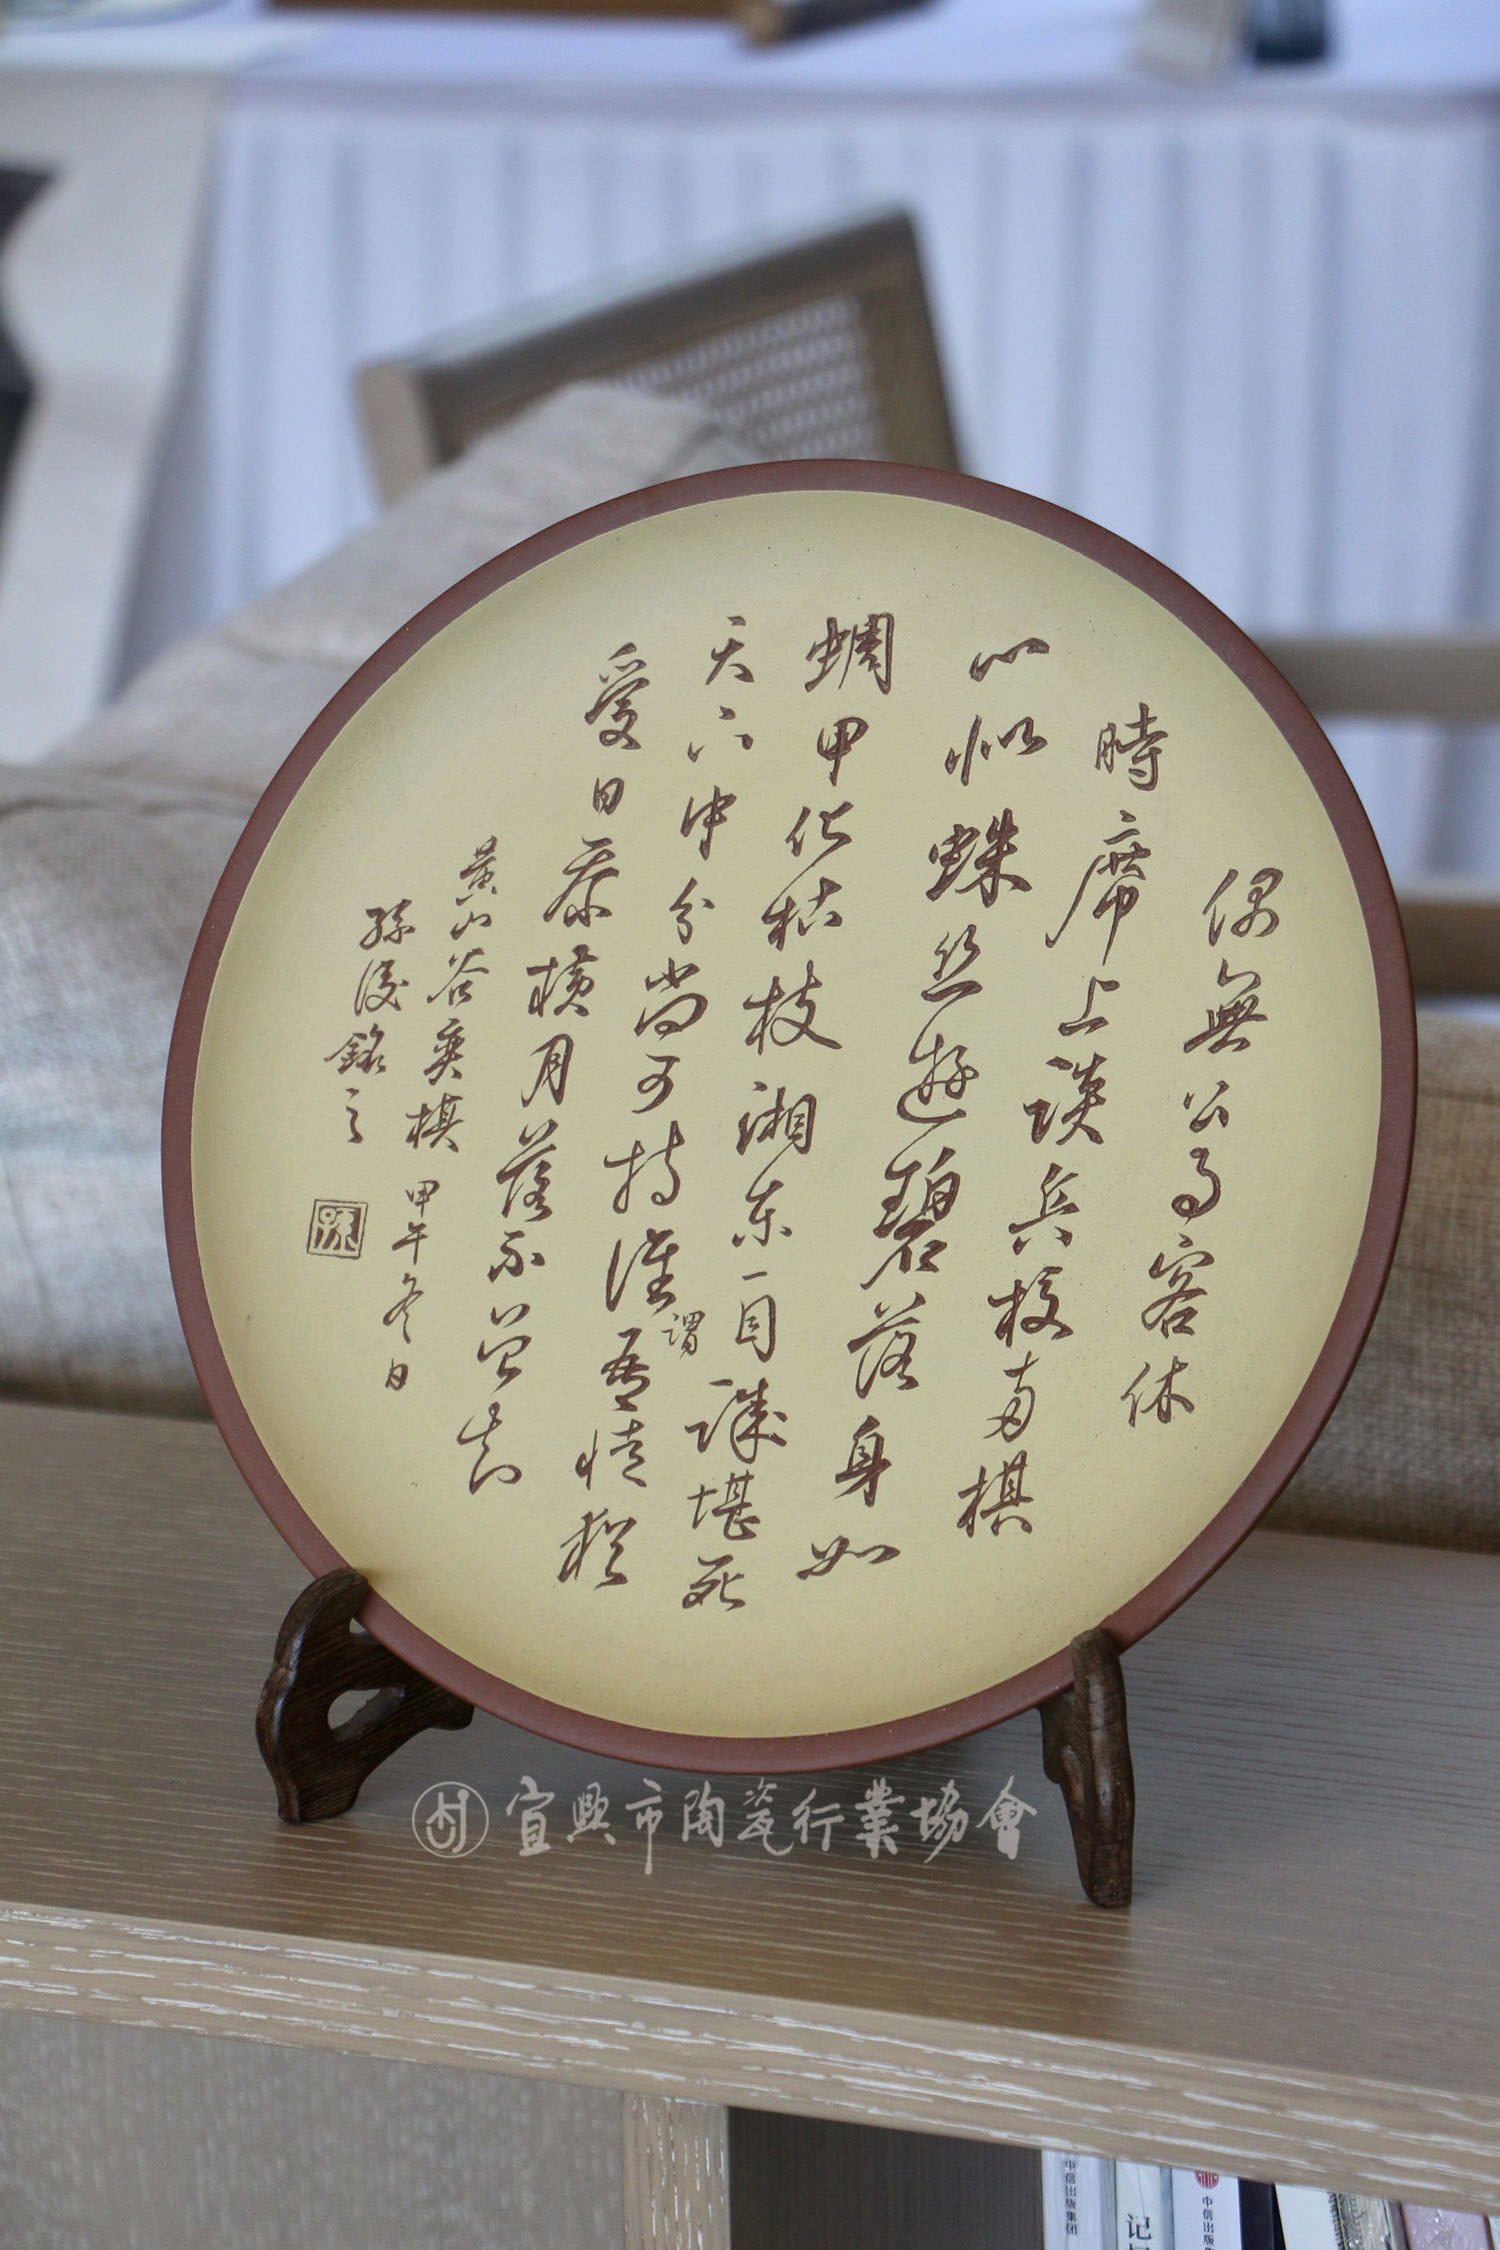 偶無公事客休
時席上談兵校兩棋
心似蛛丝遊碧落身如
蜩甲化枯枝湘東一目誠堪死
天下中分尚可持誰謂吾徒猶
愛日參橫月落不曾知
黃山谷奕棋 甲午冬日
孫 銘之
宜興市陶瓷行業協會
中信出版集团
记
中信出版